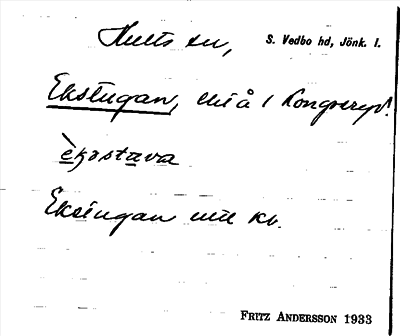 Hults sn, S. Vedbo hd, Jönk. l.
Ekstugan, till å 1 Kongseryd.
ekəstava
Ekstugan utt kb.
FRITZ ANDERSSON 1933